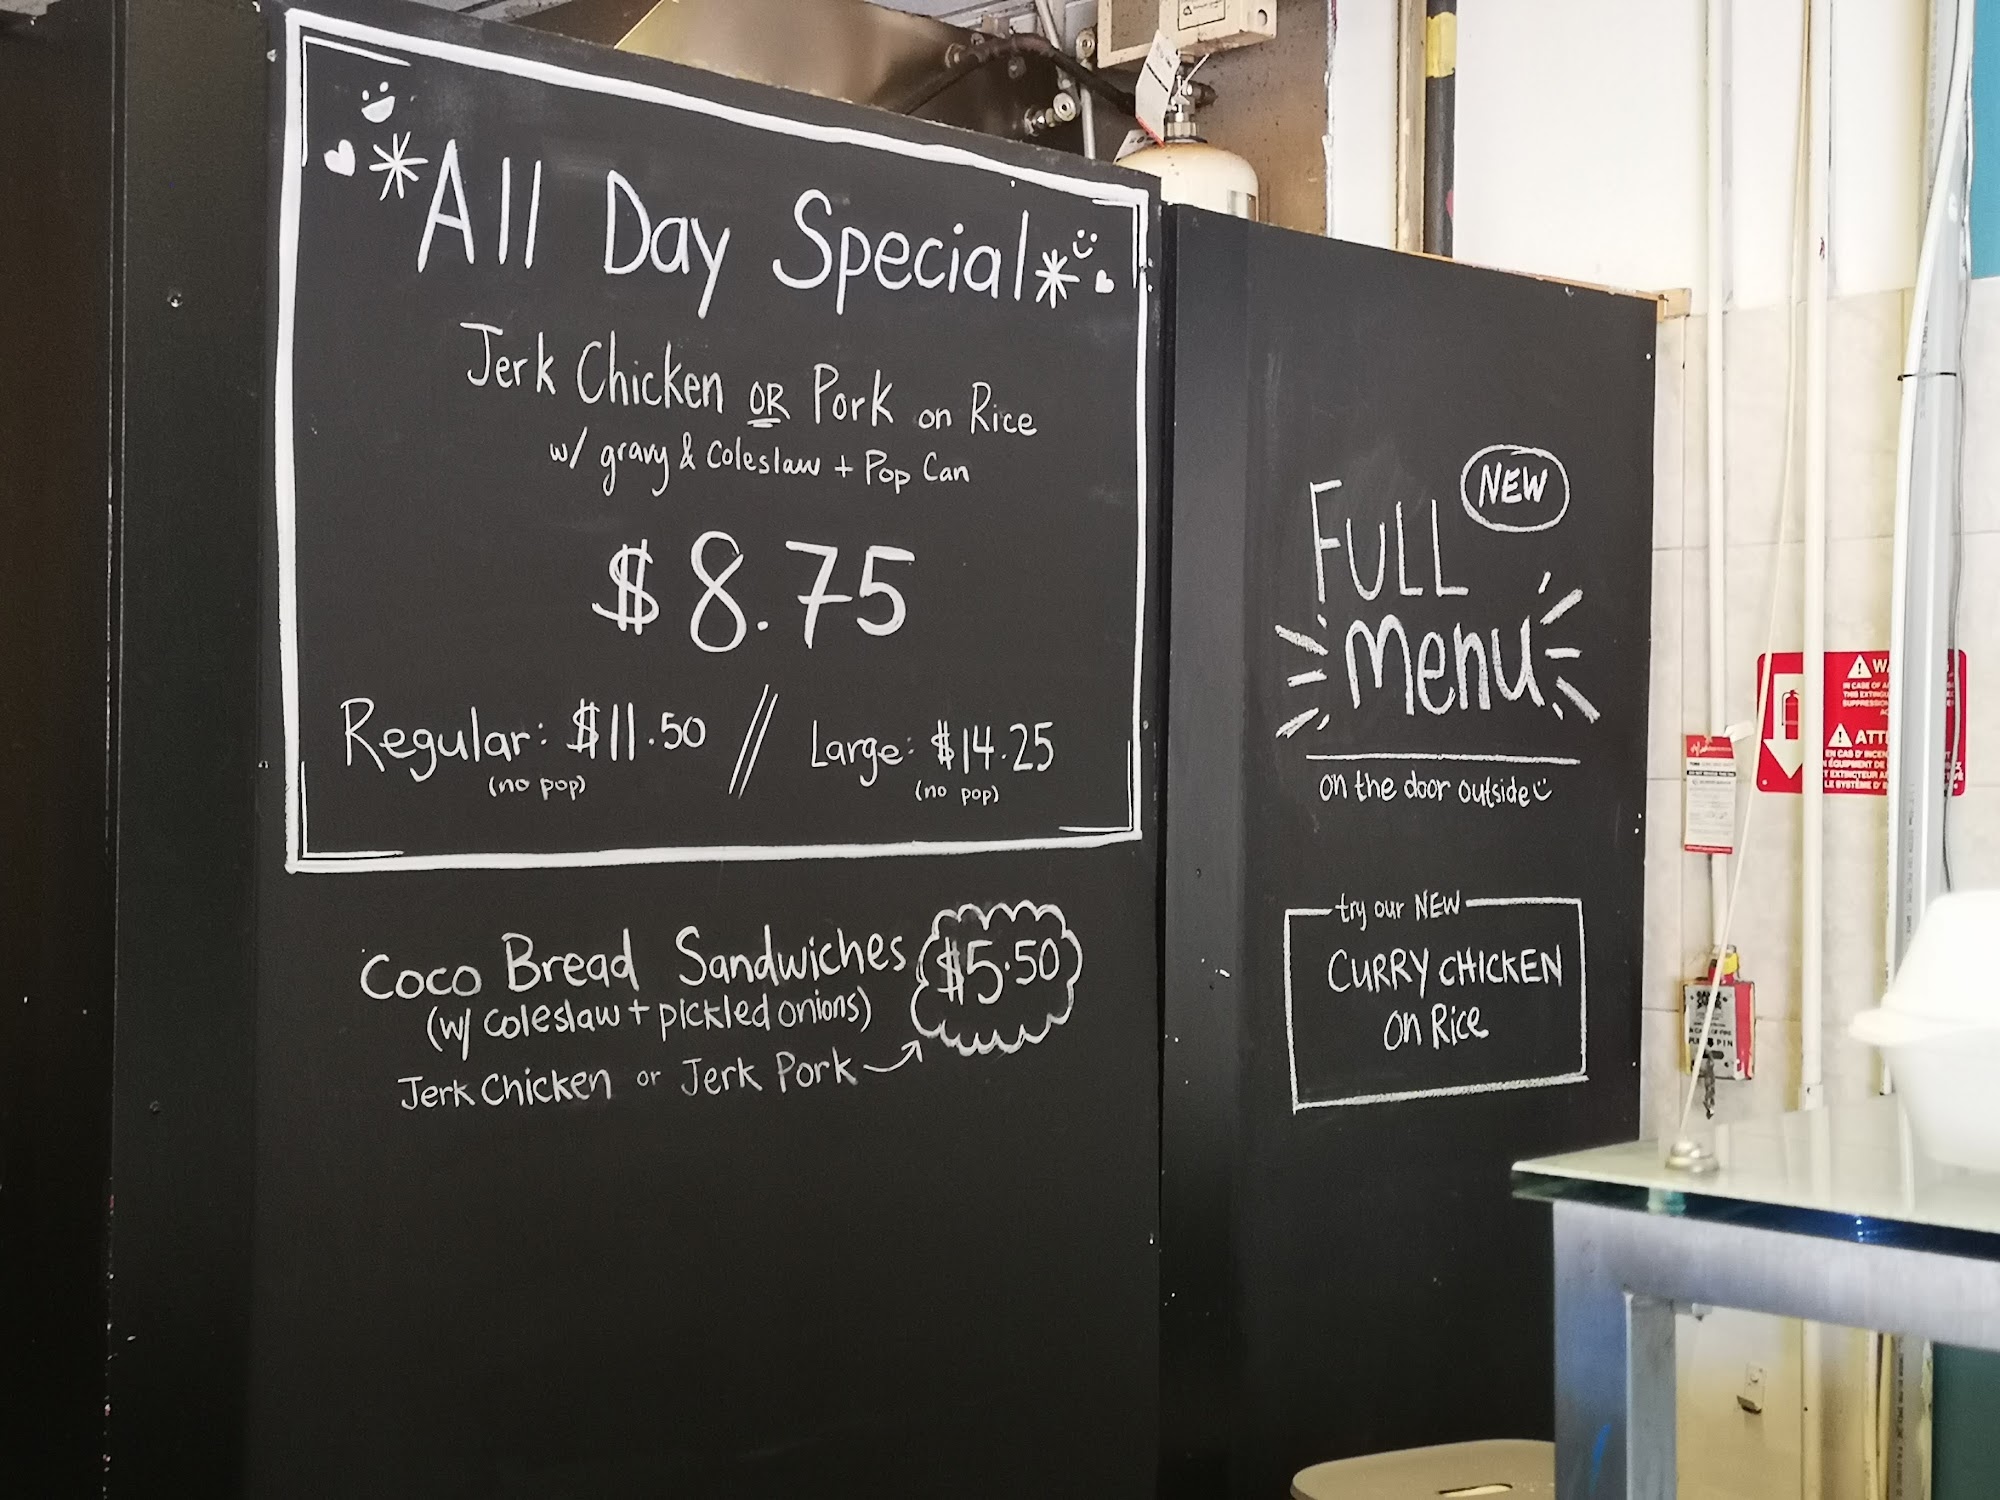 All Day Special
Jerk Chicken OR Pork on Rice
w/ gravy & Coleslaw + Pop Can
$8.75
Regular: $11.50 // Large: $14.25
(no pop) (no pop)
Coco Bread Sandwiches $5.50
(w/ coleslaw + pickled onions)
Jerk Chicken or Jerk Pork
NEW
FULL
Menu
on the door outside
try our NEW
CURRY CHICKEN
on Rice
IN CASE OF
THIS
SUPPRESSION
EN CAS D'
ÉQUIPEMENT DE
LE SYSTÈME D'
PIN